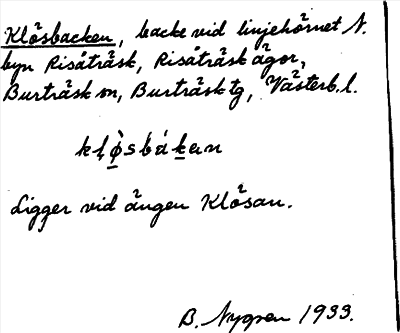 Klösbacken, backe vid linjehörnet N.
byn Risåträsk, Risåträsk ägor,
Burträsk sn, Burträsk tg, Västerb. l.
kḷø̀sbákan
Ligger vid ängen Klösan.
B. Nygren 1933.